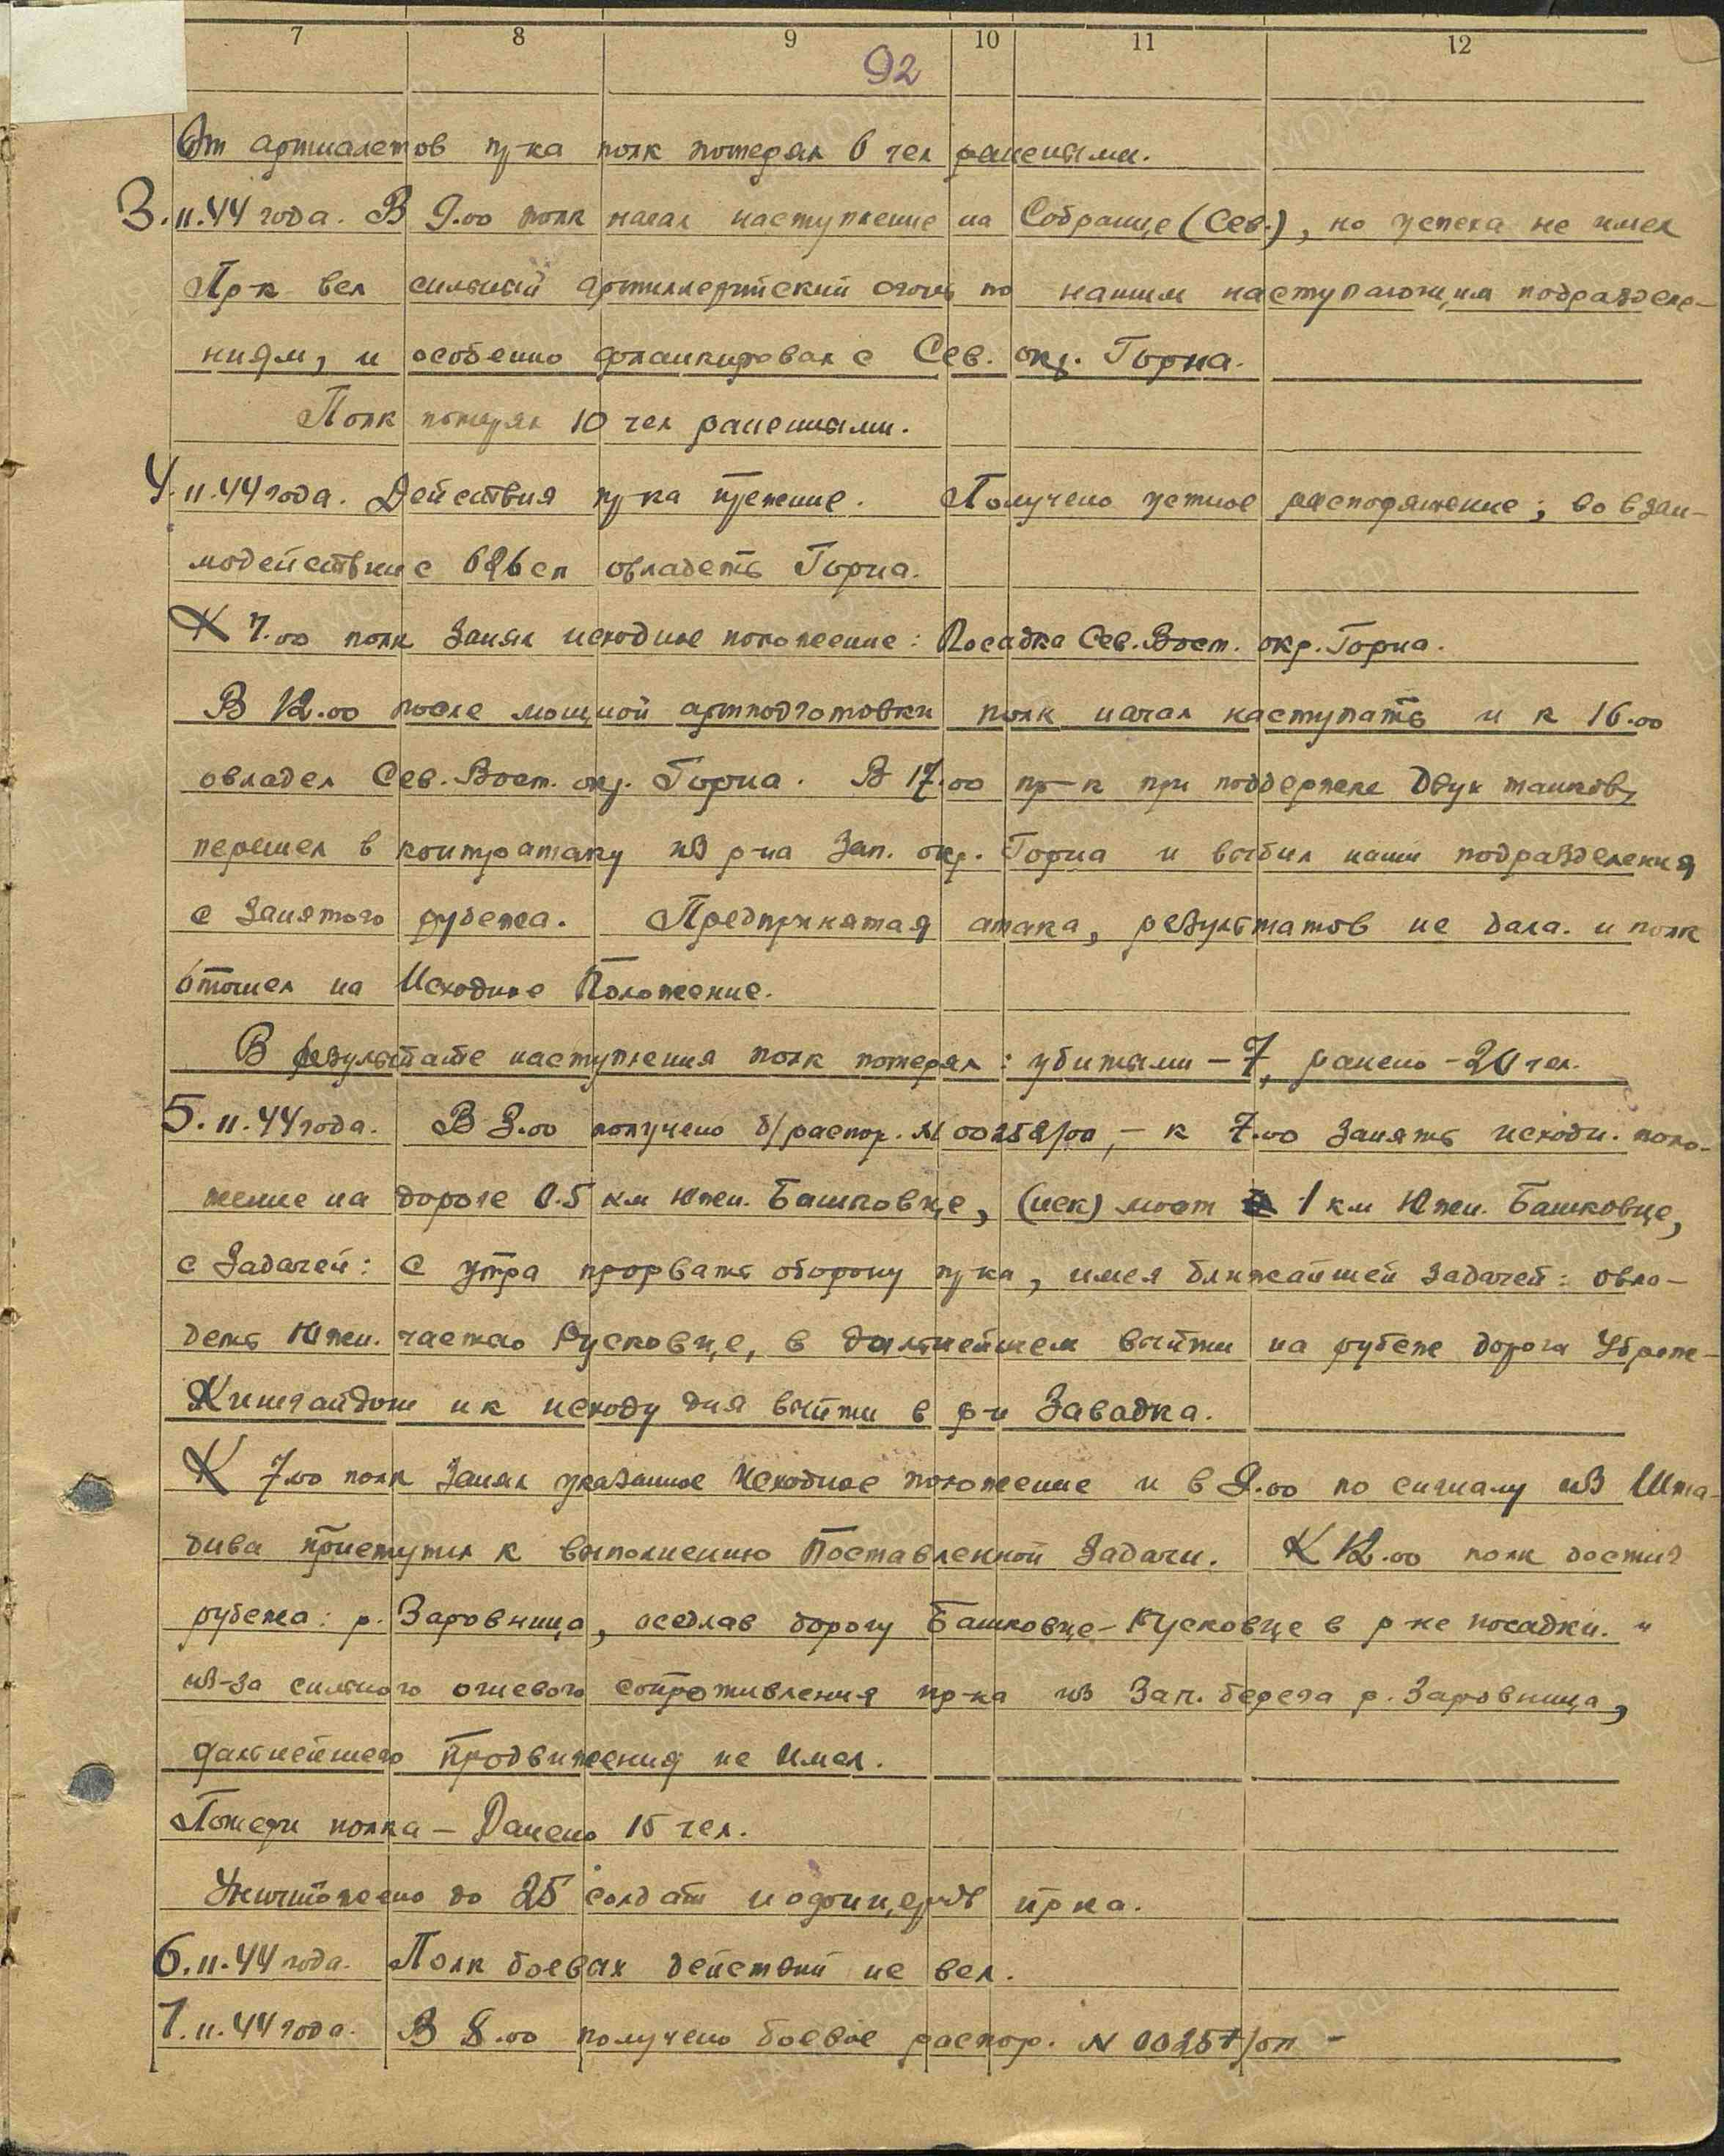 7 8 9 10 11 12
92
От артналетов пр-ка полк потерял 6 чел ранеными.
3.11.44 года. В 9.00 полк начал наступление на Собранце (Сев.), но успеха не имел
Пр-к вел сильный артиллерийский огонь по нашим наступающим подразделе-
ниям, и особенно фланкировал с Сев. окр. Горна.
Полк потерял 10 чел ранеными.
4.11.44 года. Действия пр-ка прежние. Получено устное распоряжение; во взаи-
модействии с 696 сп овладеть Горна.
К 7.00 полк занял исходное положение: Посадка Сев. Вост. окр. Горна.
В 12.00 после мощной артподготовки полк начал наступать и к 16.00
овладел Сев. Вост. окр. Горна. В 17.00 пр-к при поддержке двух танков,
перешел в контратаку из р-на Зап. окр. Горна и выбил наши подразделения
с занятого рубежа. Предпринятая атака, результатов не дала. и полк
отошел на Исходное Положение.
В результате наступления полк потерял: убитыми - 7, ранено - 20 чел.
5.11.44 года. В 3.00 получено б/распор. № /оп, - к 7.00 занять исходн. поло-
жение на дороге 0.5 км Южн. Башковце, (иск) мост 1 км Южн. Башковце,
с задачей: с утра прорвать оборону пр-ка, имея ближайшей задачей: овла-
деть Южн. частью Русковце, в дальнейшем выйти на рубеж дорога Убреж-
Кишгайдош и к исходу дня выйти в р-н Завадка.
К 7.00 полк занял указанное Исходное положение и в 9.00 по сигналу из Шта-
дива приступил к выполнению Поставленной задачи. К 12.00 полк достиг
рубежа: р. Заровница, оседлав дорогу Башковце-Русковце в р-не посадки. и
из-за сильного огневого сопротивления пр-ка из Зап. берега р. Заровница,
дальнейшего продвижения не имел.
Потери полка - Ранено 15 чел.
Уничтожено до 25 солдат и офицеров пр-ка.
6.11.44 года. Полк боевых действий не вел.
7.11.44 года. В 8.00 получено боевое распор. N /оп -